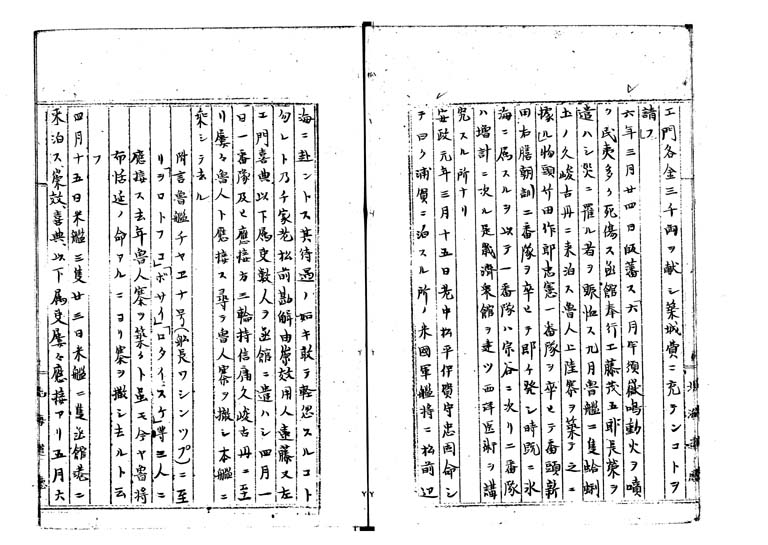 工門各金三千両ヲ献シ築城費ニ充テンコトヲ
請フ
六年三月廿四日帰藩ス六月午須嶽鳴動火ヲ噴
ク民夷多ク死傷ス函館奉行工藤茂五郎長栄ヲ
遣ハシ災ニ罹ル者ヲ賑恤ス九月魯艦二隻蛤蜊
土ノ久峻古丹ニ来泊ス魯人上陸寨ヲ築ク之ニ
拠ル物頭竹田作郎忠憲一番隊ヲ卒ヒテ番頭新
田右膳朝訓二番隊ヲ卒ヒテ即チ発シ時既ニ氷
海ニ属スルヲ以テ一番隊ハ宗谷ニ次リ二番隊
ハ増計ニ次ル是歳済衆館ヲ建ツ西洋医術ヲ講
究スル所ナリ
安政元年三月十五日老中松平伊賀守忠固命シ
テ曰ク浦賀ニ泊スル所ノ米国軍艦将ニ松前辺
海ニ赴ントス其待遇ノ如キ敢テ軽忽スルコト
勿レト乃チ家老松前勘解由崇效用人遠藤又左
エ門喜典以下属吏数人ヲ函館ニ遣ハシ四月一
日一番隊及ヒ應接方三輪持信庸久峻古丹ニ至
リ屡々魯人ト應接ス尋テ魯人寨ヲ撤シ本艦ニ
乗シテ去ル
附言魯艦チヤヱナ号(船長ワシンツプ)ニ至
リヲロトフコ「ボサイ」ロタイスケ等三人ニ
應接ス去年魯人寨ヲ築クト虽モ今ヤ魯将
布恬延ノ命アルニヨリ寨ヲ撤シ去ルト云
フ
四月十五日米艦三隻廿三日米艦二隻函館港ニ
来泊ス崇效、喜典、以下属吏屡々應接アリ五月六